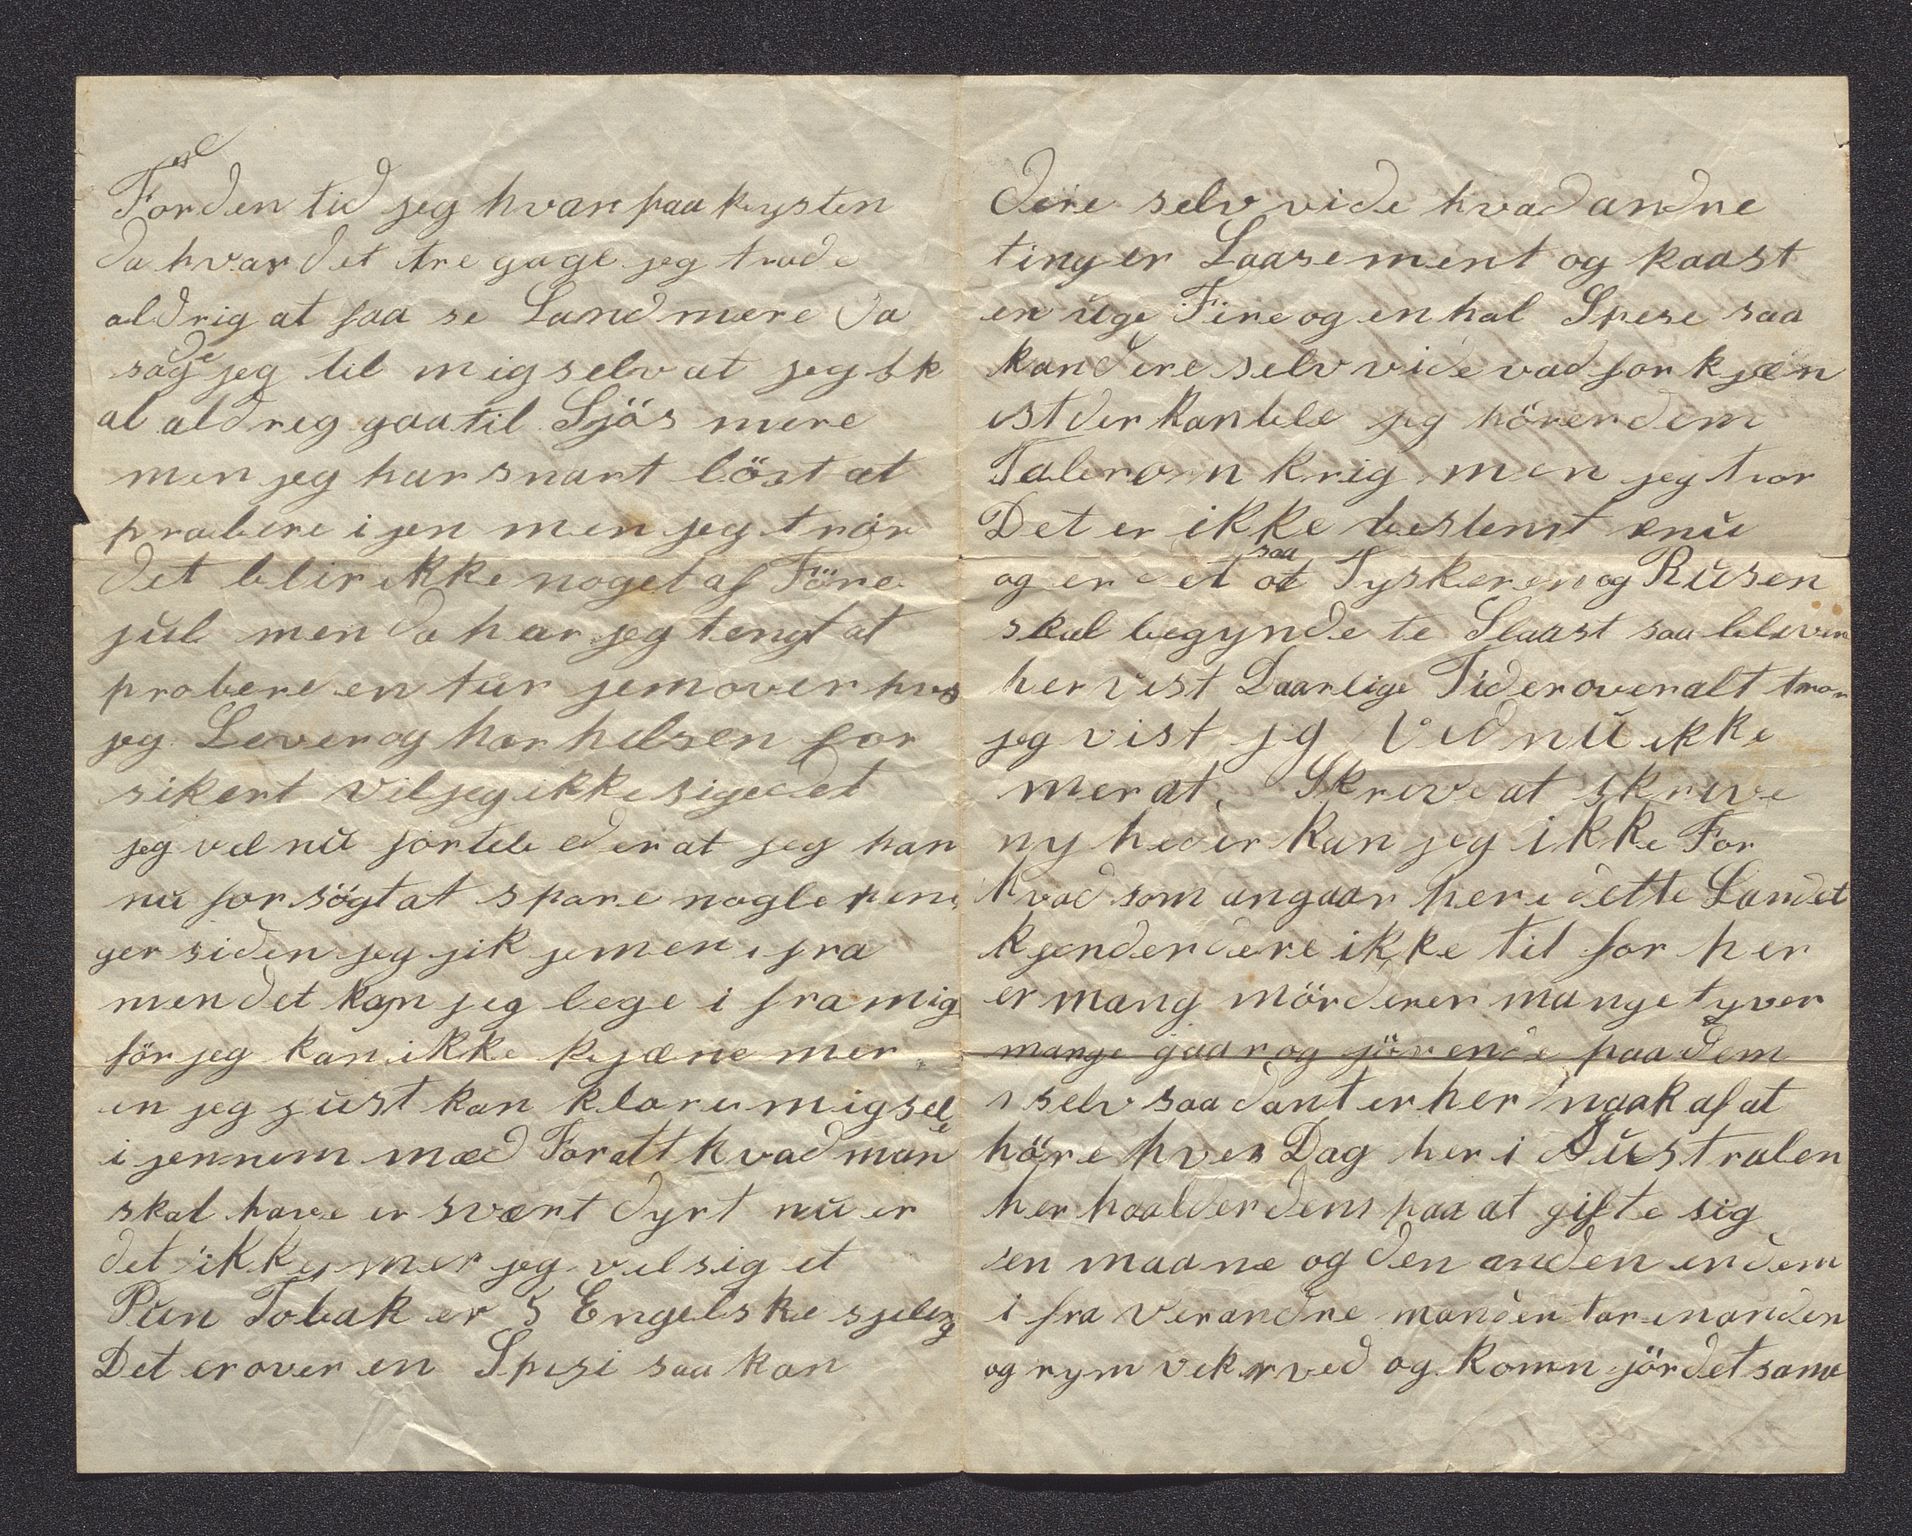 Forden tid jeg hvar paa kysten
da hvar det tre gage jeg trode
aldrig at faa se Land mere da
sagde jeg til mig selv at jeg sk
al aldreg gaa til Sjös mere
men jeg har snart löst at
probere i jen men jeg tror
det blir ikke noget af Före
jul men da har jeg tengt at
probere en tur jemover hvis
jeg Lever og har helsen for
sikert vil jeg ikke sige det
jeg vel nu fortele eder at jeg har
nu forsögt at spare nogle pen
ger siden jeg jik jemen i fra
men det kan jeg lege i fra mig
för jeg kan ikke kjæne mer
en jeg just kan klare mig selv
i jennem mæd For alt kvad man
skal have er svært dyrt nu er
det ikke mer jeg vel sig et
Pun Tobak er 5 Engelske sjeling
Det er over en Spesi saa kan
dere selv vide hvad andre
ting er Laasement og kaast
en uge Fire og en hal Spese saa
kan dere selv vide vad for kjæn
ist der kan bele jeg hörer dem
Taler om krig men jeg tror
Det er ikke bestemt enu
og er det saa at Tyskeren og Rusen
skal begynde te Slaast saa blever
her vist Daarlige Tider overalt tror
jeg vist jg Ved nu ikke
mer at Skrive at skrive
nyheder kan jeg ikke For
hvad som angaar her i dette Landet
kjender dere ikke til for her
er mang mörderer mange tyver
mange gaar og jörende paa dem
selv saadant er her naak af at
höre hver Dag her i Australen
her haalder dem paa at gifte sig
en maane og den anden er dem
i fra verandre manden tar en anden
og rym vek ved og komn jör det same